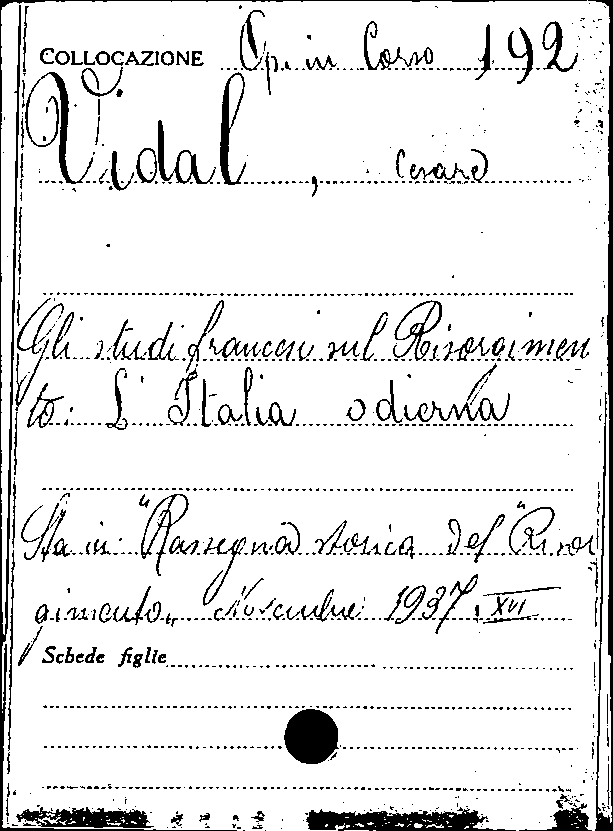 COLLOCAZIONE Op. in Corso 192
Vidal, Cesare
Gli studi francesi sul Risorgimen
to: L'Italia odierna
Sta in: "Rassegna storica del "Risor
gimento„ Novembre 1937. XVI
Schede figlie